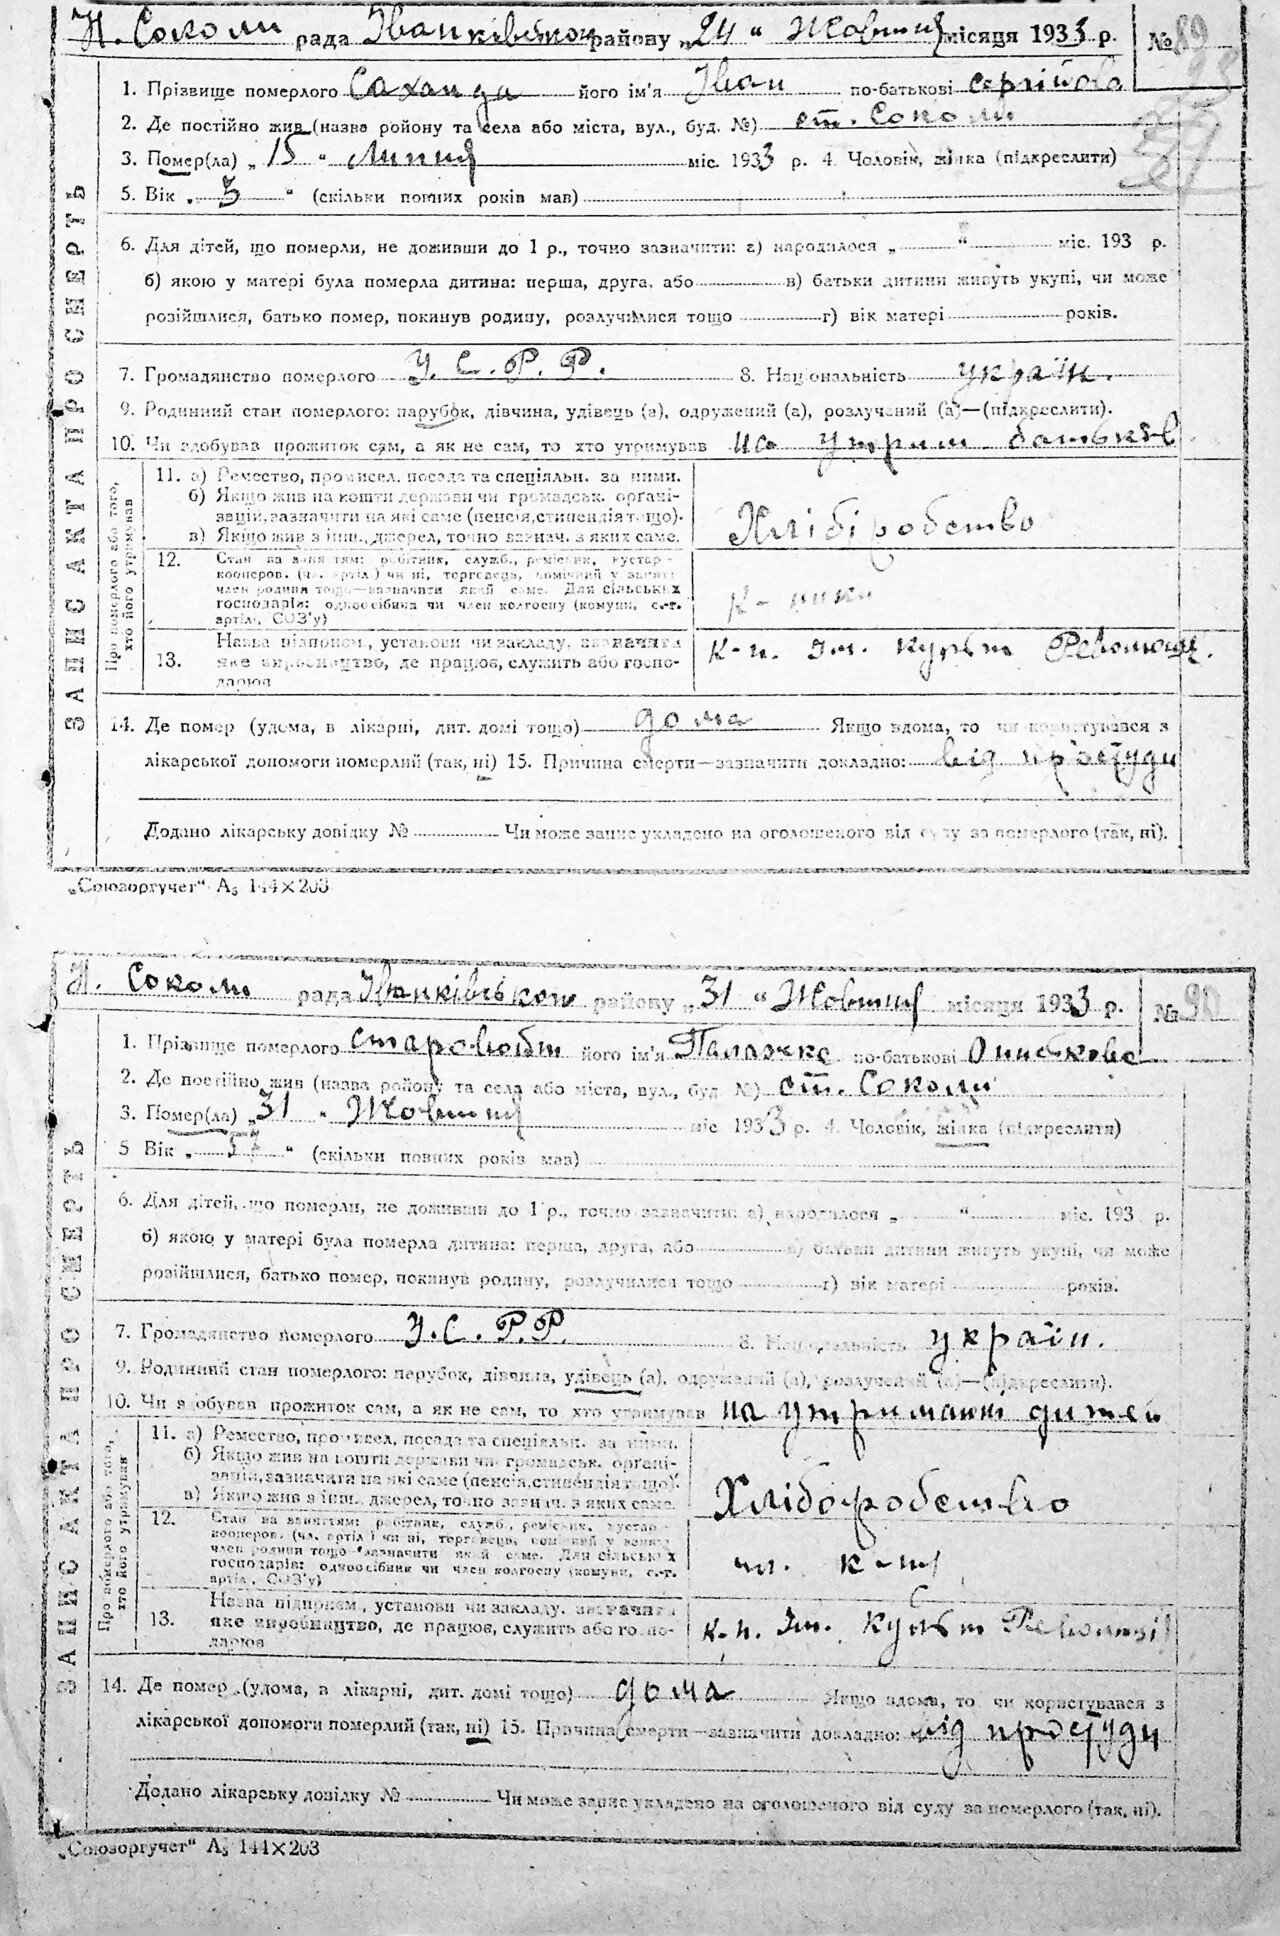 Н. Соколи рада Іванківського району „24“ Жовтня місяця 1933 р. № 89
93
1. Прізвище померлого Саханда його ім'я Іван по-батькові Сергійово
2. Де постійно жив (назва ройону та села або міста, вул., буд. №) ст. Соколи
3. Помер(ла) „15“ Липня міс. 1933 р. 4. Чоловік, жінка (підкреслити)
5. Вік „3“ (скільки повних років мав)
ЗАПИС АКТА ПРО СМЕРТЬ
6. Для дітей, що померли, не доживши до 1 р., точно зазначити: а) народилося „ “ міс. 193 р.
б) якою у матері була померла дитина: перша, друга, або в) батьки дитини живуть укупі, чи може
розійшлися, батько помер, покинув родину, розлучилися тощо г) вік матері років.
7. Громадянство померлого У. С. Р. Р. 8. Національність україн.
9. Родинний стан померлого: парубок, дівчина, удівець (а), одружений (а), розлучений (а)—(підкреслити).
10. Чи здобував прожиток сам, а як не сам, то хто утримував на утрим батьків
Про померлого або того, хто його утримував
11. а) Ремество, промисел, посада та спеціяльн. за ними.
б) Якщо жив на кошти держави чи громадськ. органі-
зацій, зазначити на які саме (пенсія, стипендія тощо).
в) Якщо жив з інш. джерел, точно зазнач. з яких саме.
Хлібіробство
12. Стан за заняттям: робітник, служб., ремісник, кустар -
кооперов. (чл. артіл.) чи ні, торговець, помічний у занятт
член родини тощо—зазначити який саме. Для сільських
господарів: одноосібник чи член колгоспу (комуни, с.-г.
артіл., СОЗ'у)
13. Назва підприєм., установи чи закладу, зазначити
яке виробництво, де працював, служить або госпо-
дарював
к-п. Ім. культ Революції.
14. Де помер (удома, в лікарні, дит. домі тощо) дома Якщо вдома, то чи користувався з
лікарської допомоги померлий (так, ні) 15. Причина смерти—зазначити докладно: від простуди
Додано лікарську довідку № Чи може запис укладено на оголошеного від суду за померлого (так, ні).
„Союзоргучет“ А5 144×203
Н. Соколи рада Іванківського району „31“ Жовтня місяця 1933 р. № 90
1. Прізвище померлого Старовойт його ім'я Палажка по-батькові
2. Де постійно жив (назва району та села або міста, вул., буд №) ст. Соколи
3. Помер(ла) „31“ Жовтня міс 1933 р. 4. Чоловік, жінка (підкреслити)
5 Вік „57“ (скільки повних років мав)
ЗАПИС АКТА ПРО СМЕРТЬ
6. Для дітей, що померли, не доживши до 1 р., точно зазначити: а) народилося „ “ міс. 193 р.
б) якою у матері була померла дитина: перша, друга, або в) батьки дитини живуть укупі, чи може
розійшлися, батько помер, покинув родину, розлучилися тощо г) вік матері років.
7. Громадянство померлого У. С. Р. Р. 8. Національність україн.
9. Родинний стан померлого: парубок, дівчина, удівець (а), одружений (а), розлучений (а)—(підкреслити).
10. Чи здобував прожиток сам, а як не сам, то хто утримував на утриманні дитей
Про померлого або того, хто його утримував
11. а) Ремество, промисел, посада та спеціяльн. за ними.
б) Якщо жив на кошти держави чи громадськ. органі-
зацій, зазначити на які саме (пенсія, стипендія тощо).
в) Якщо жив з інш. джерел, точно зазнач. з яких саме.
Хліборобство
12. Стан за заняттям: робітник, служб., ремісник, кустар -
кооперов. (чл. артіл.) чи ні, торговець, помічний у занятт
член родини тощо—зазначити який саме. Для сільських
господарів: одноосібник чи член колгоспу (комуни, с.-г.
артіл., СОЗ'у)
чл. к-пу
13. Назва підприєм., установи чи закладу, зазначити
яке виробництво, де працював, служить або госпо-
дарював
к-п. Ім. Культ Революції
14. Де помер (удома, в лікарні, дит. домі тощо) дома Якщо вдома, то чи користувався з
лікарської допомоги померлий (так, ні) 15. Причина смерти—зазначити докладно: від простуди
Додано лікарську довідку № Чи може запис укладено на оголошеного від суду за померлого (так, ні).
„Союзоргучет“ А5 144×203